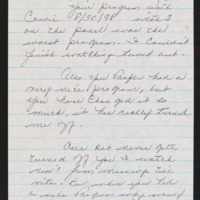 Your program with
Connie 8/30/98 with 3
on the panel was the
worst program. I couldn't
finish watching, turned out.
Also you people had a
very nice program, but
you have changed it so
much, it has really turned
me off.
Our set never gets
turned off. We watch
news from morning till
nite. But when you talk